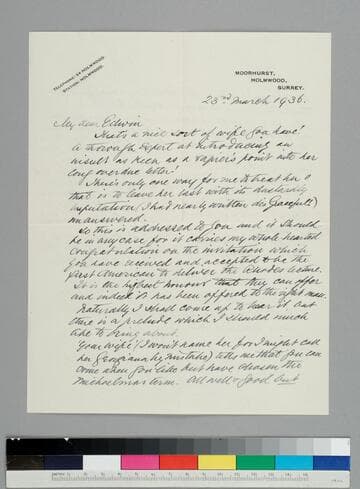 TELEPHONE: 24 HOLMWOOD.
STATION: HOLMWOOD.
MOORHURST,
HOLMWOOD,
SURREY.
23rd March 1936.
My dear Edwin
That's a nice sort of wife you have!
A thorough expert at introducing an
insult as keen as a rapier's point into her
long overdue letter!
There's only one way for me to treat her &
that is to leave her last with its dastardly
imputation (I had nearly written disgraceful)
unanswered.
So this is addressed to you and it should
be in any case for it carries my whole hearted
congratulation on the invitation which
you have received and accepted to be the
first American to deliver the Rhodes lecture.
It is the highest honour that they can offer
and indeed it has been offered to the right man.
Naturally I shall come up to hear it but
there is a prelude which I should much
like to bring about.
Your wife (I won't name her for I might call
her Georgiana by mistake) tells me that you can
come when you like but have chosen the
Michaelmas term. All well & good but